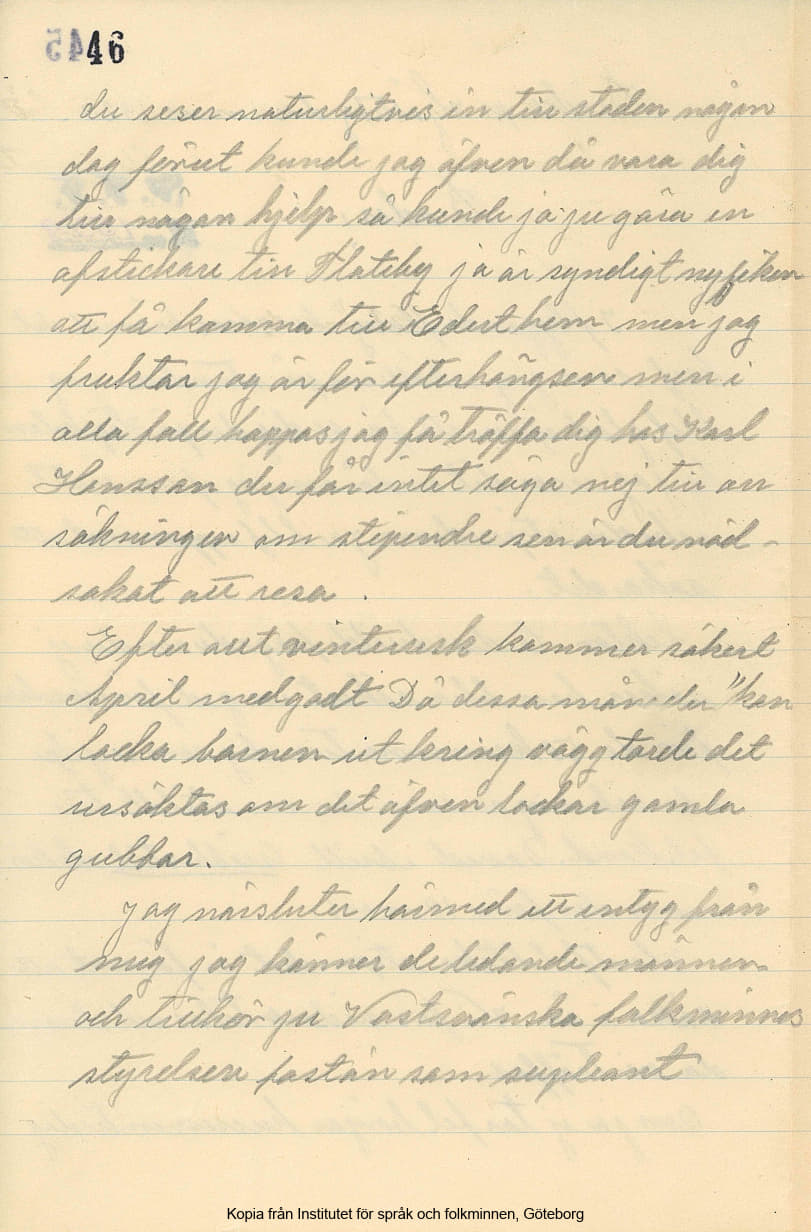 46
du reser naturligtvis in till staden någon
dag förut kunde jag äfven då vara dig
till någon hjelp så kunde ja ju göra en
afstickare till Flateby ja är syndigt nyfiken
att få komma till Edert hem men jag
fruktar jag är för efterhängsen men i
alla fall hoppas jag få träffa dig hos Karl
Hansson du får intet säga nej till an
sökningen om stipendie sen är du nöd-
sakat att resa.
Efter allt vinterusk kommer säkert
April med godt Då dessa månader "kan
locka barnen ut kring vägg torde det
ursäktas om det äfven lockar gamla
gubbar.
Jag närsluter härmed ett intyg från
mig jag känner de ledande männen
och tillhör ju Västsvänska folkminnes
styrelsen fastän som supleant
Kopia från Institutet för språk och folkminnen, Göteborg